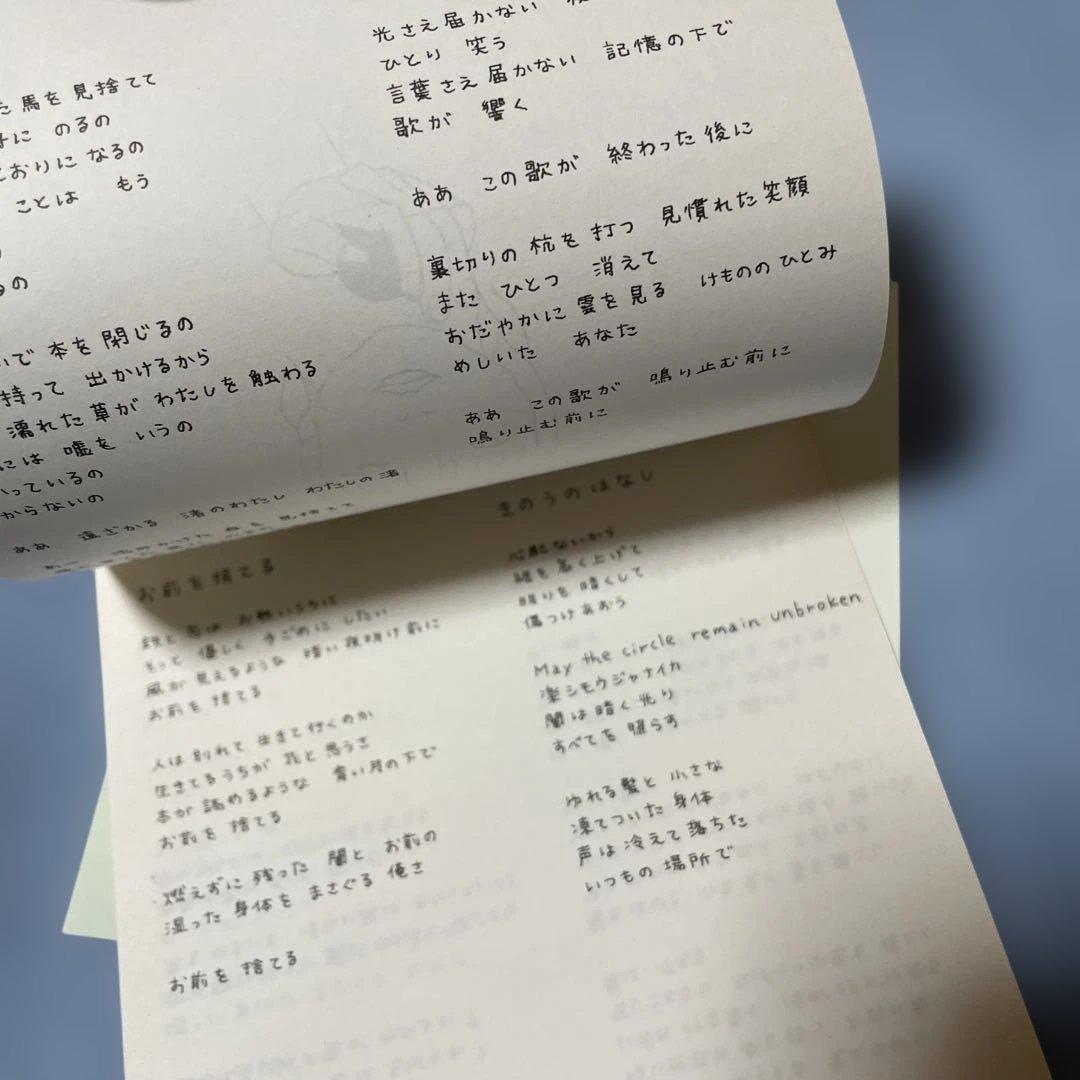 た馬を見捨てて
に のるの
とおりに なるの
ことは もう
るの
いで 本を 閉じるの
持って 出かけるから
濡れた草が わたしを 触わる
には 嘘を いうの
っているの
からないの
ああ 遠ざかる 渚のわたし わたしの渚
光さえ届かない
ひとり 笑う
言葉さえ届かない 記憶の下で
歌が 響く
ああ この歌が 終わった後に
裏切りの 杭を 打つ 見慣れた笑顔
また ひとつ 消えて
おだやかに 雲を見る けものの ひとみ
めしいた あなた
ああ この歌が 鳴り止む前に
鳴り止む前に
お前を捨てる
もっと 優しく 手ごめに したい
風が 見えるような 暗い夜明け前に
お前を 捨てる
人は 別れて 生きて行くのか
生きてるうちが 花と 思うさ
本が 読めるような 青い月の下で
お前を 捨てる
燃えずに 残った 闇と お前の
湿った 身体を まさぐる 俺さ
お前を 捨てる
きのうのはなし
心配ないから
を 高く上げて
明りを 暗くして
傷つけあおう
May the circle remain unbroken
凄シモウジャナイカ
闇は 暗く 光り
すべてを 照らす
ゆれる髪と 小さな
凍てついた 身体
声は 冷えて 落ちた
いつもの 場所で